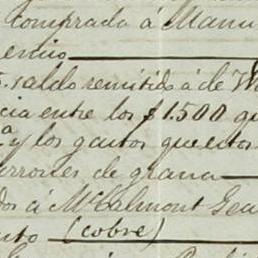 comprada á Manu
envio
s. saldo remitido á de W
cia entre los $1.500 qu
a y los gastos que estos
urrones de grana
os á McCalmont Gea
nto (cobre)